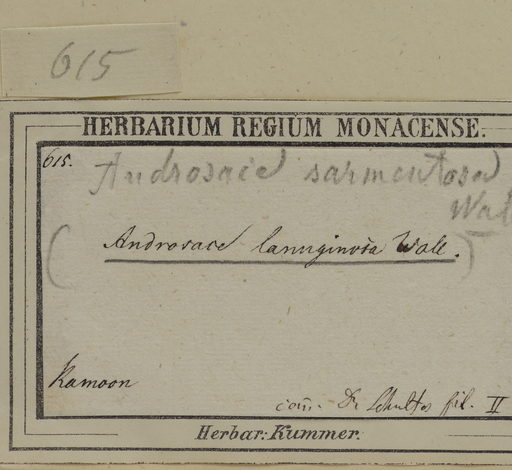 615
HERBARIUM REGIUM MONACENSE.
615.
Androsace sarmentosa
Wal
(Androsace lanuginosa Wall.)
Kamoon
com. Dr Schultes fil. II
Herbar: Kummer.